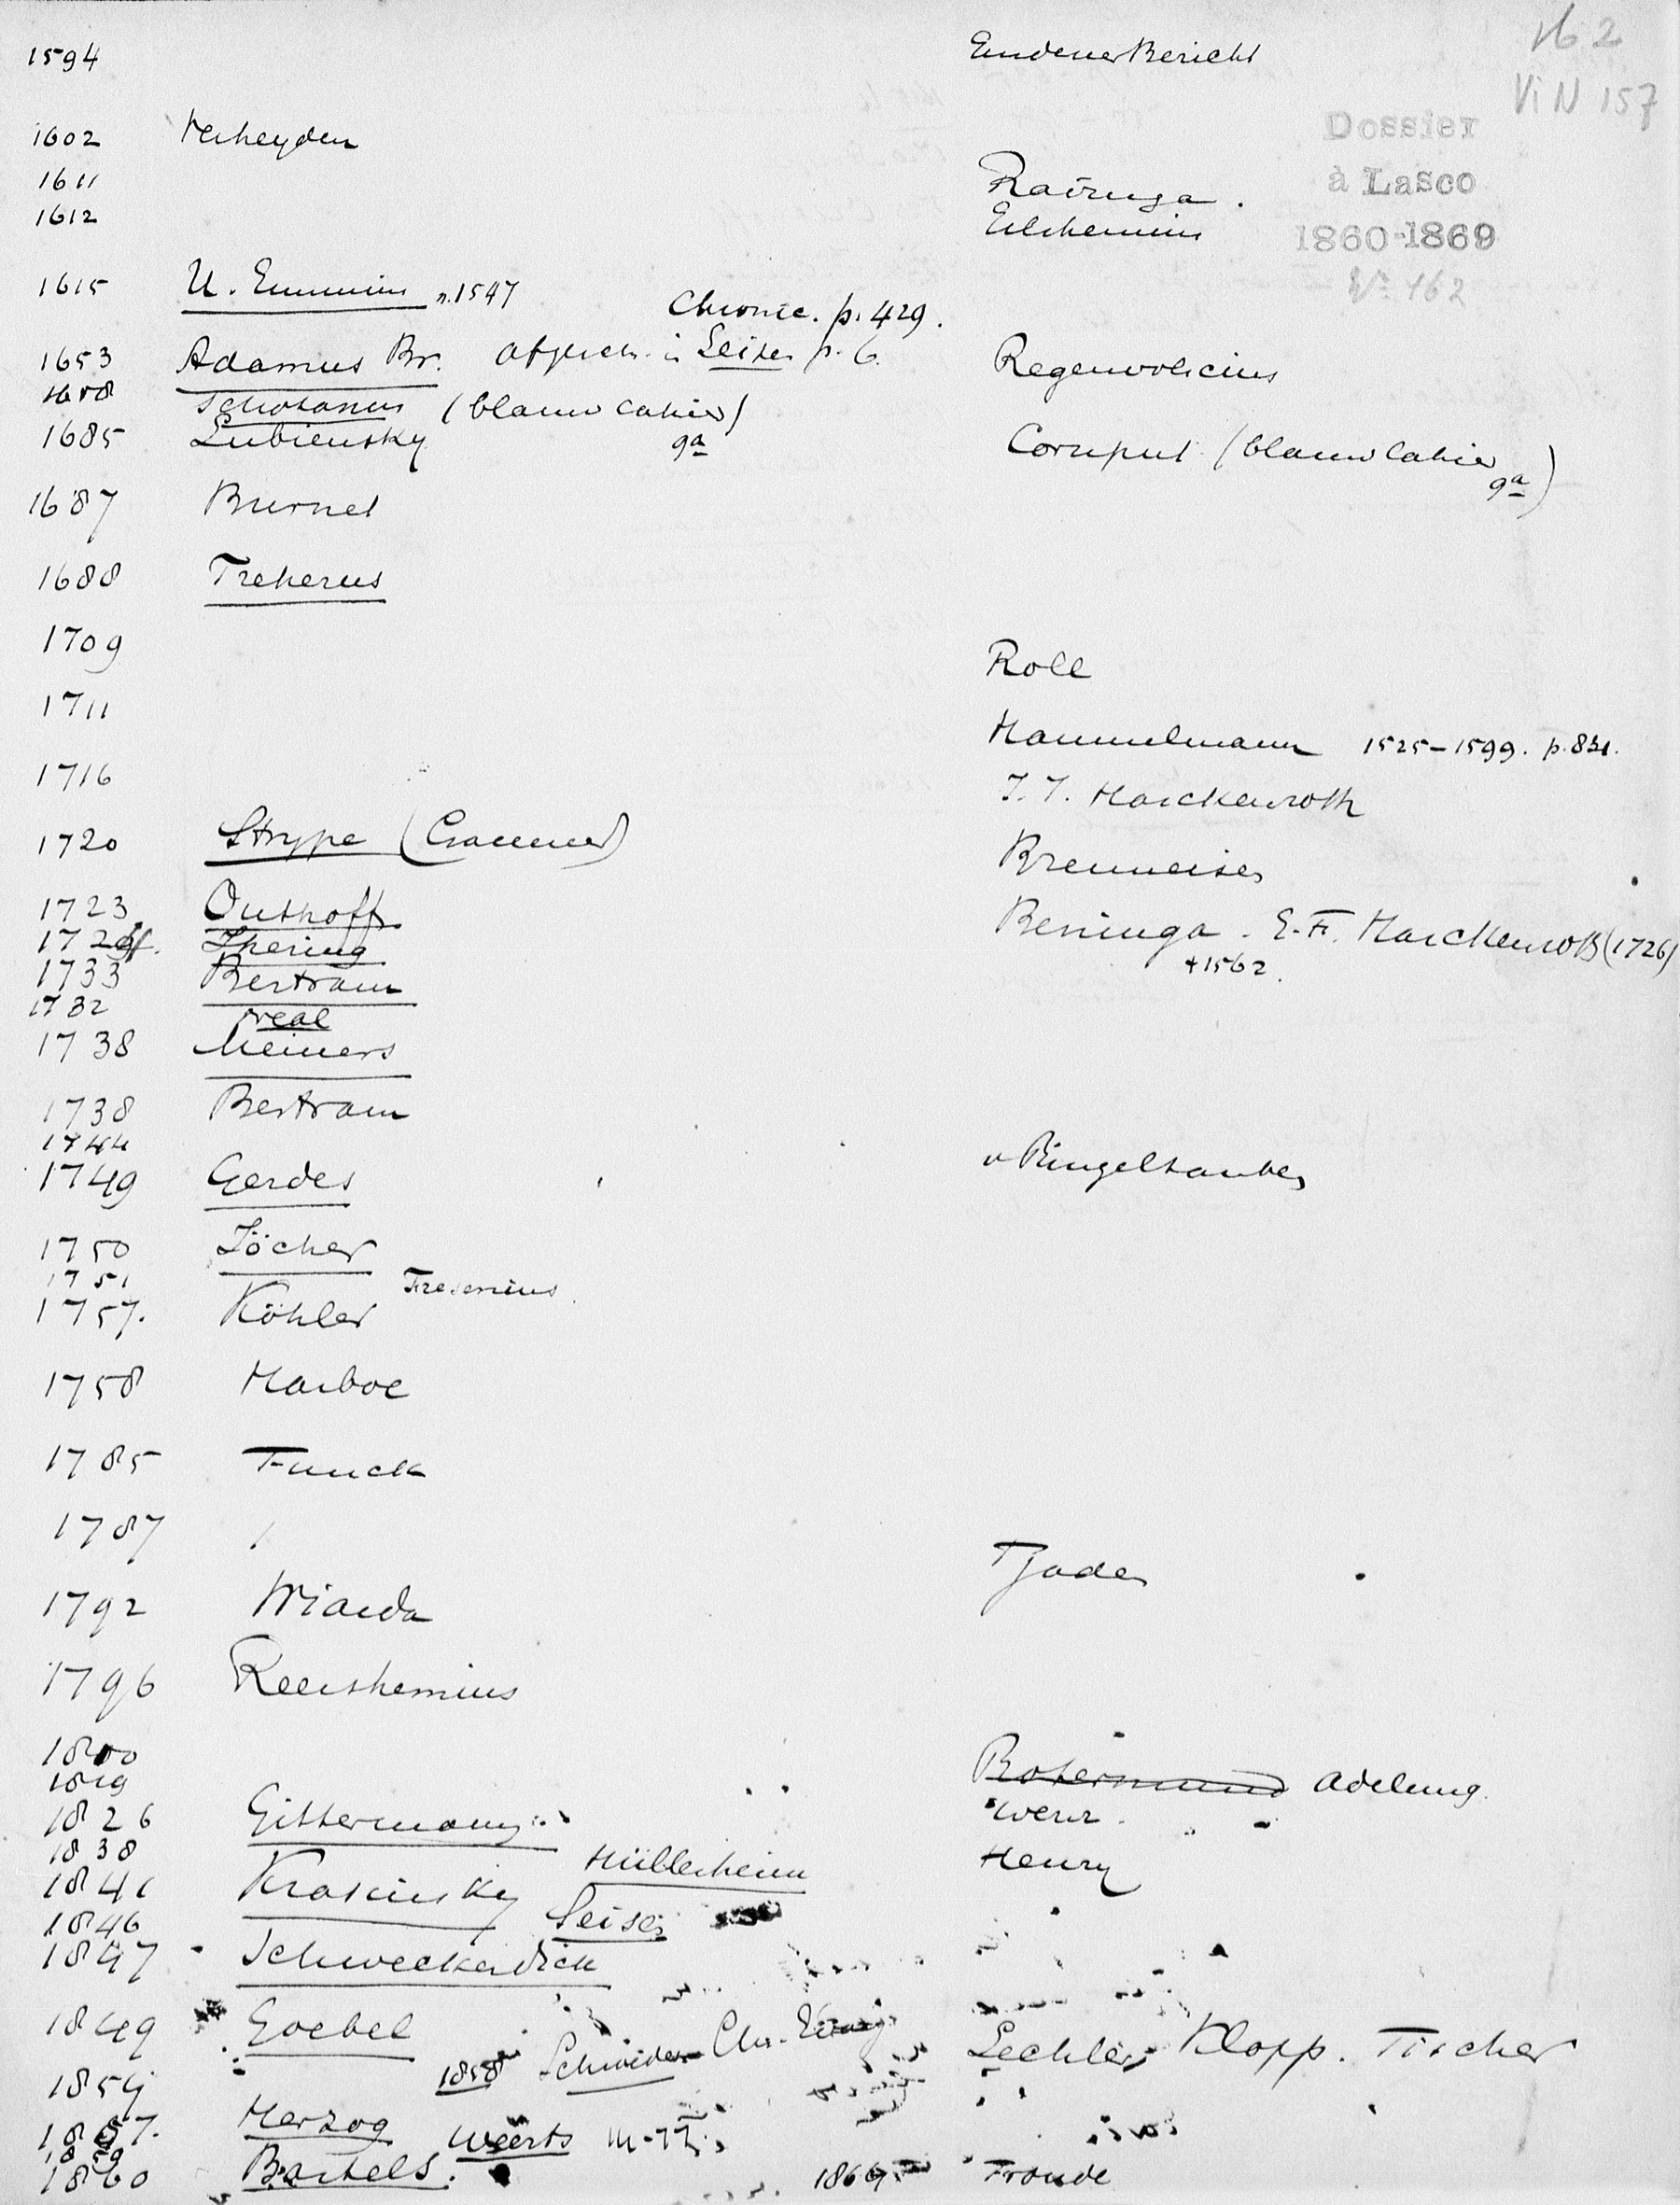 162
1594 Emdener Bericht
Vi N 157
Dossier
1602 Verheyden
1611 Ravinga.
à Lasco
1612 Eilshemius
1860-1869
No 162
1615 U. Emmius n.1547 Chronic. p. 429.
1653 Adamus Br. in Seiser p. 6. Regenvolscius
1658 Schotanus (blauw cahier
9a)
1685 Lubiensky Cornput (blauw cahier
9a)
1687 Burnet
1688 Freherus
1709 Roll
1711 Hammelmann 1525-1599. p.831.
1716 J. J. Harckenroth
1720 Strype (Cranmer) Brenneisen
1723 Outhoff Beninga. E. F. Harckenroth (1726)
+1562.
Ihering
1733 Bertram
1732 Neal
1738 Meiners
1738 Bertram
1744 v Ringeltaube
1749 Gerdes
1750 Jöcher
1751 Fresenius
1757. Köhler
1758 Harboe
1785 Funck
1787 Tjaden
1792 Wiarda
1796 Reershemius
1800 Rotermund Adelung.
1819
1826 Gittermann
1838 Müllerheim Henry
1841 Krasinsky
1846 Seisen
1847 Schweckendieck
1849 Goebel
1858 Schneider Chr. Lechler, Klopp. Fischer
1854
1857. Herzog Weerts
1859
1860 Bartels. 1864 Froude